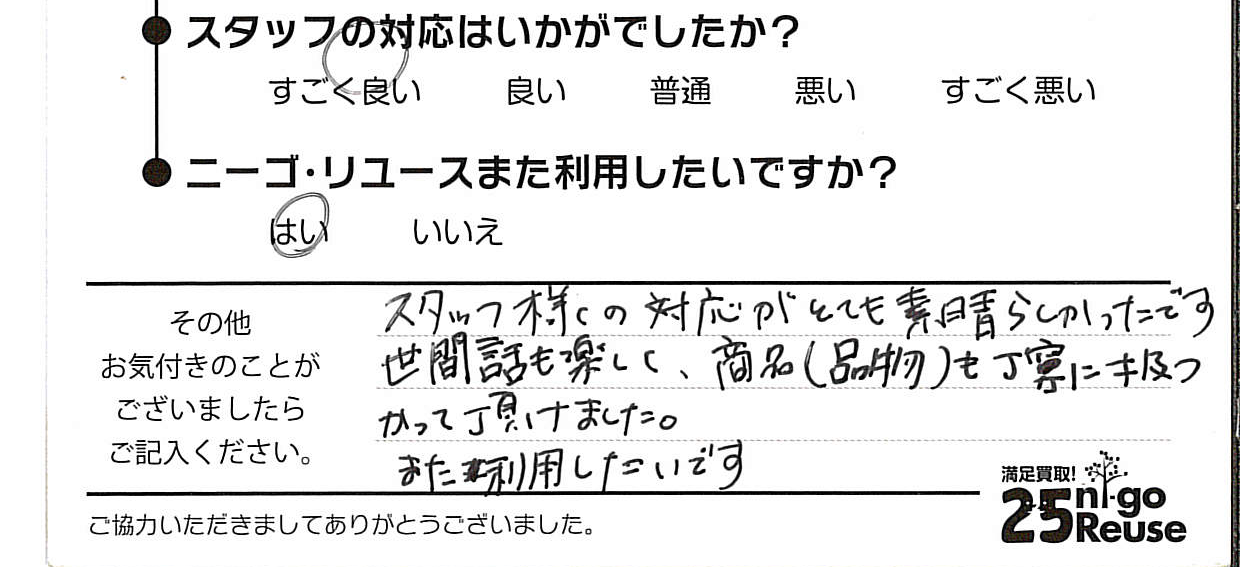 スタッフの対応はいかがでしたか？
すごく良い　良い　普通　悪い　すごく悪い
ニーゴ・リユースまた利用したいですか？
はい　いいえ
その他
お気付きのことが
ございましたら
ご記入ください。
スタッフ様の対応がとても素晴らしかったです
世間話も楽しく、商品(品物)も丁寧に扱つ
かって頂けました。
また利用したいです
満足買取!
25 ni-go
Reuse
ご協力いただきましてありがとうございました。